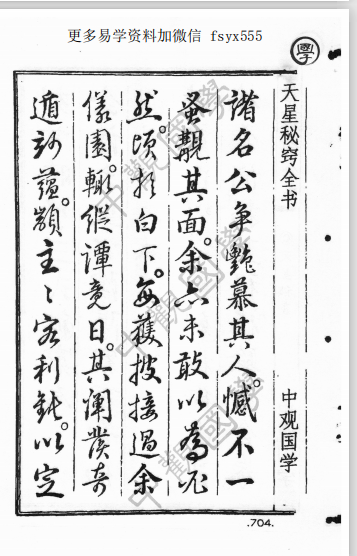 更多易学资料加微信 fsyx555
學
天星秘窍全书
中观国学
諸名公争艷慕其人。憾不一
其面。余六未敢以為
然。頃於白下。每獲披接過余
園。輙縱譚竟日。其闡發奇
遁蘊。主〻客利鈍。以定
.704.
中觀國學
中觀國學